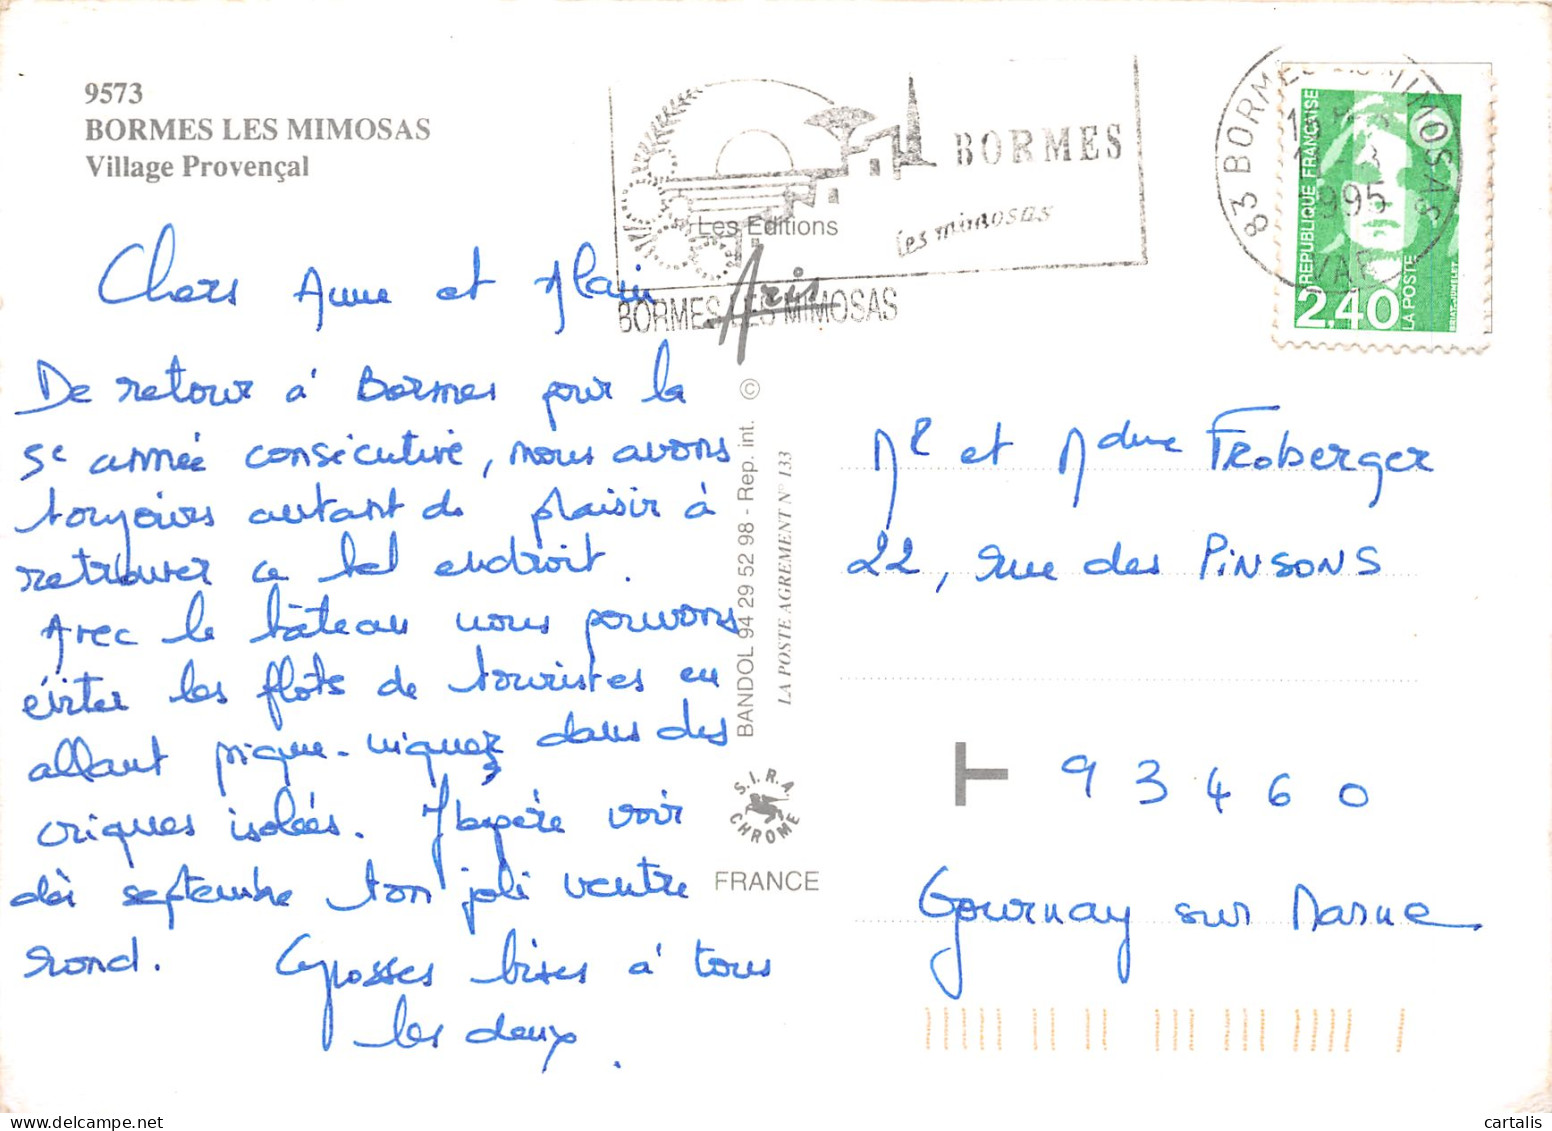 9573
BORMES LES MIMOSAS
Village Provençal
BORMES
les mimosas
BORMES LES MIMOSAS
Les Editions
Aris
83 BORMES LES MIMOSAS
1995
VAR
REPUBLIQUE FRANÇAISE
2,40
LA POSTE
BRIAT-JUMELET
Chers Anne et Alain
De retour à Bormes pour la
5e année consécutive, nous avons
toujours autant de plaisir à
retrouver ce bel endroit.
Avec le bâteau nous pouvons
éviter les flots de touristes en
allant pique-niquer dans des
criques isolées. J'espère voir
dès septembre ton joli ventre
rond. Grosses bises à tous
les deux.
BANDOL 94 29 52 98 - Rep. int. ©
LA POSTE AGREMENT N° 133
S.I.R.A.
CHROME
FRANCE
Mr et Mdme Froberger
22, rue des PINSONS
T 93460
Gournay sur Marne
cartalis